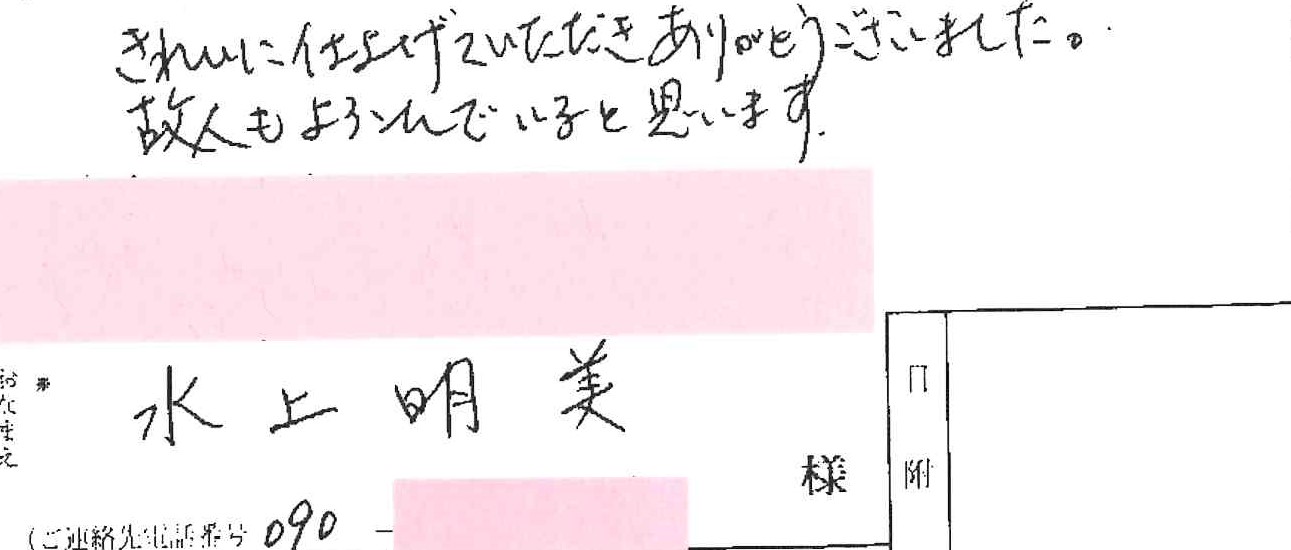 きれいに仕上げていただきありがとうございました。
故人もよろこんでいると思います.
※
おなまえ
水上明美
様
日附
(ご連絡先電話番号 090 -